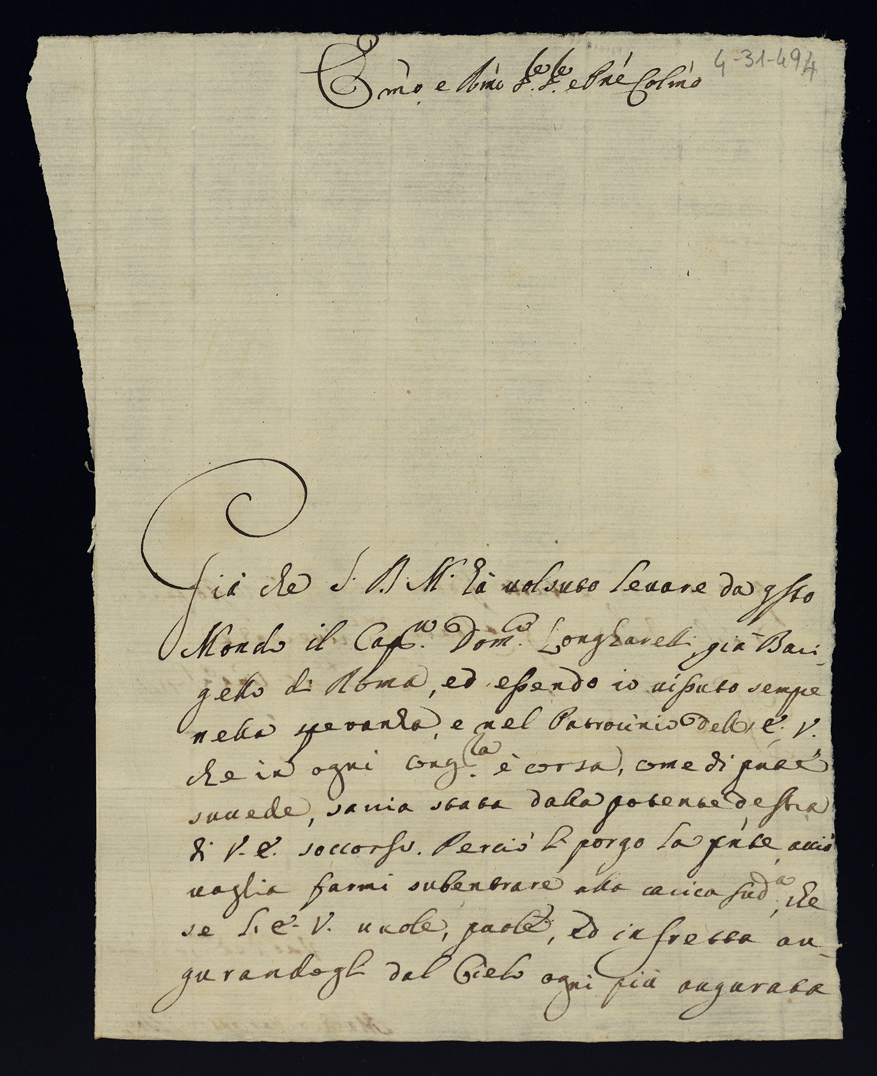 4-31-494
Emo, e Rmo Sre Sre e Pne Colmo
Già che S. B. M. hà volsuto levare da qsto
Mondo il Capn. Domco. Longharelli, già Bari-
gello di Roma, ed essendo io vissuto sempe
nella speranza, e nel Patrocinio dell' E. V.
che in ogni congra. è corsa, come di pnte
suvede, saria stata dalla potente destra
di V. E. soccorso. Perciò li porgo la pnte, acciò
voglia farmi subentrare alla carica suda, che
se l'E. V. vuole, puole, ed in fretta au-
gurandogli dal Cielo ogni più augurata